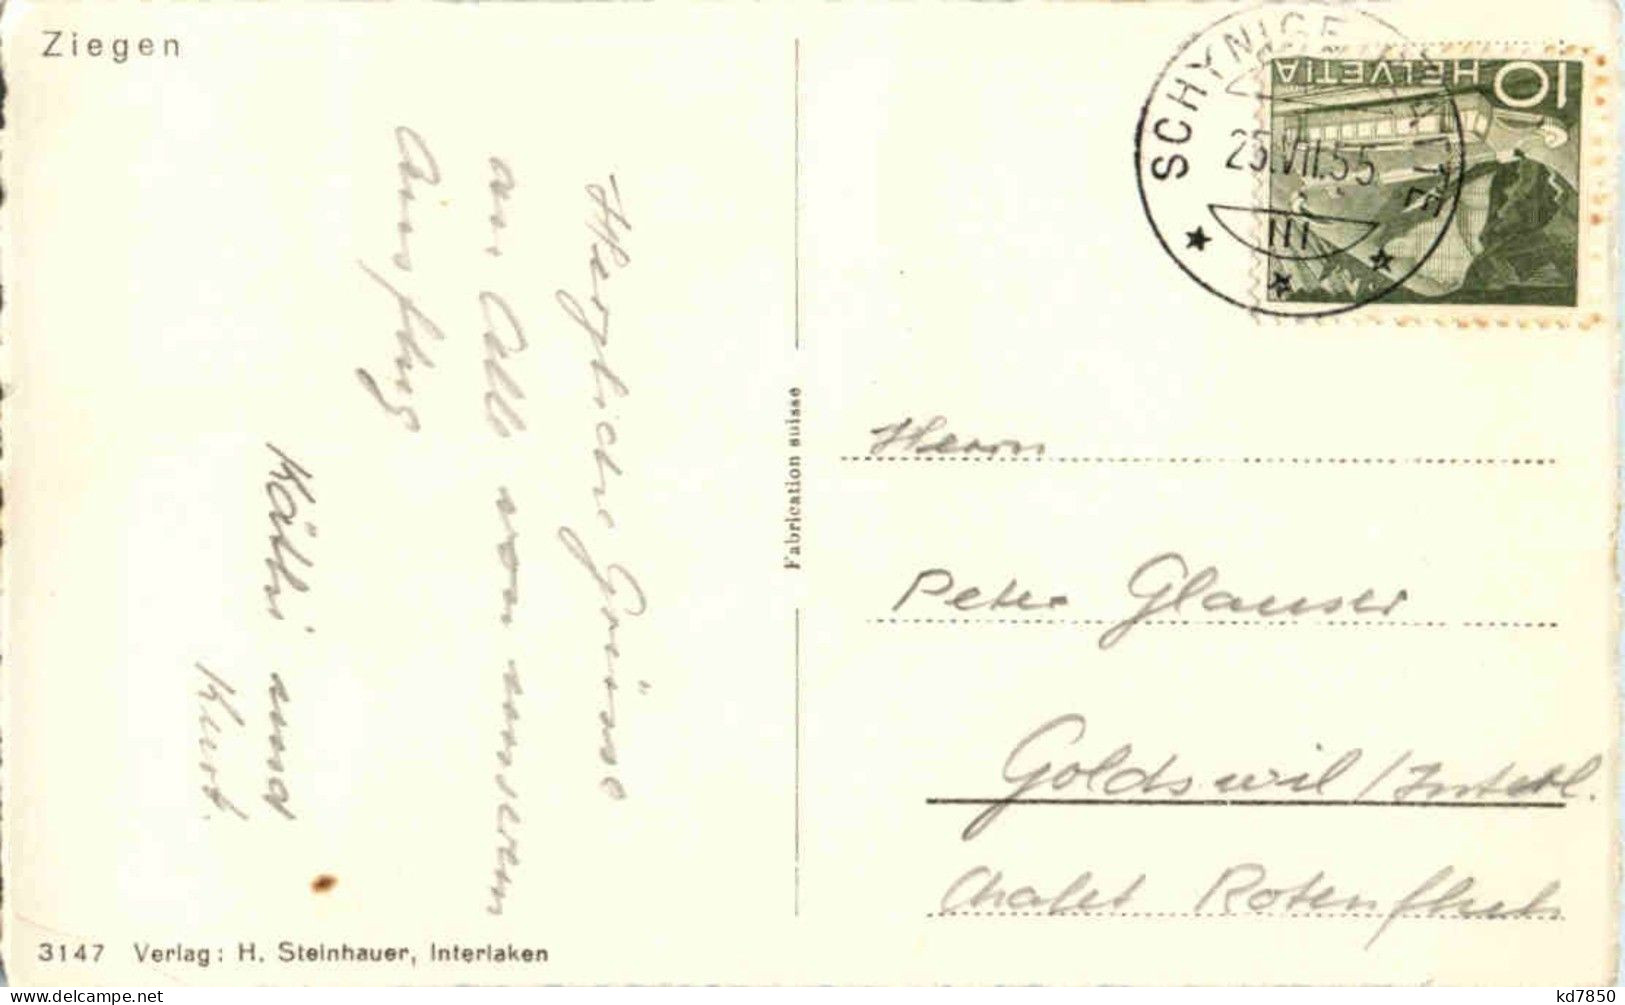 Ziegen
SCHYNIGE PLATTE
25.VII.55
III
HELVETIA 10
Herzliche Grüsse
an Alle von unserem
Ausflug
Käthi und
Kurt.
Fabrication suisse
Herrn
Peter Glauser
Goldswil / Interl.
Chalet Rotenfluh
3147 Verlag: H. Steinhauer, Interlaken
kd7850